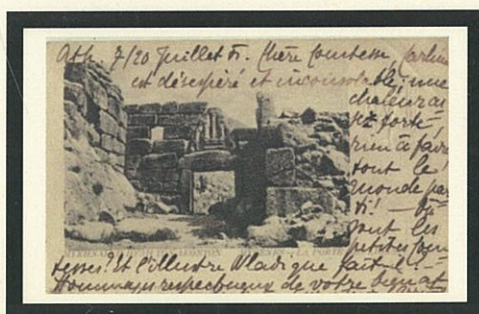 Ath. 7/20 Juillet
Chère Comtesse,
est désespéré et inconsolable, une
chaleur as
sez forte
rien à faire
tout le
monde par
ti! — Où
sont les
petites com
LA PORTE
tesses? Et l'illustre Wlad que fait-il? —
Hommages respectueux de votre